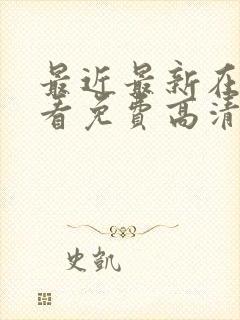 最近最新在
看免费高清
史凯